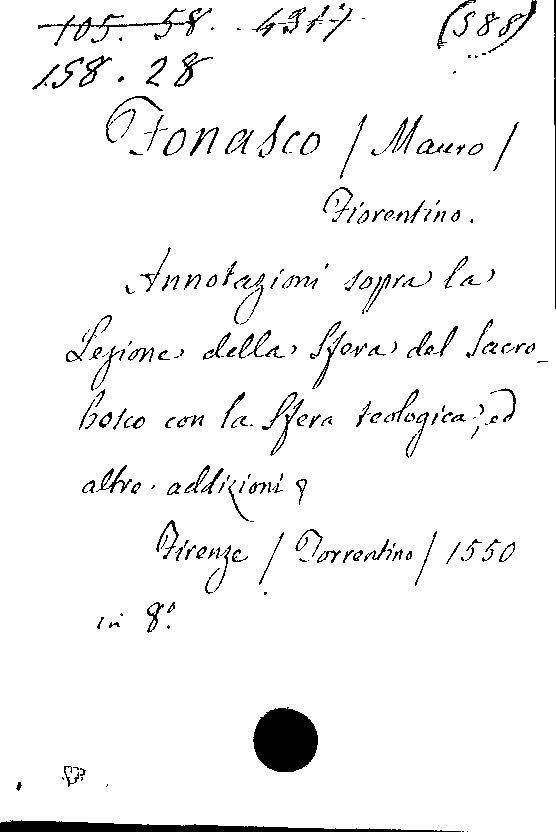 105. 58. 4377. (588)
158.28
Fonasco / Mauro /
Fiorentino.
Annotazioni sopra la
Lezione della Sfera del Sacro_
bosco con la Sfera teologica, ed
altre addizioni
Firenze / Torrentino / 1550
in 8º.